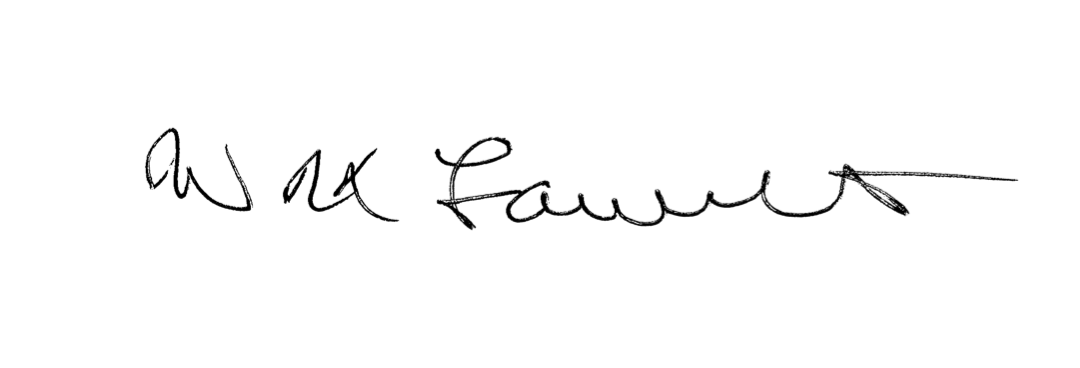 W H Fawcett